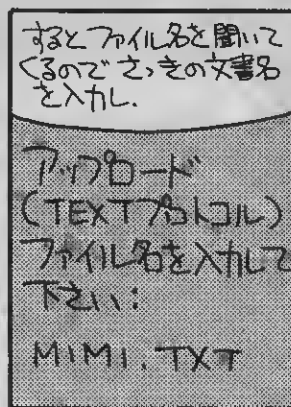 すると ファイル名を聞いて
くるので さっきの文書名
を入力し.
アップロード
(TEXTプロトコル)
ファイル名を入力して
下さい:
MIMI.TXT